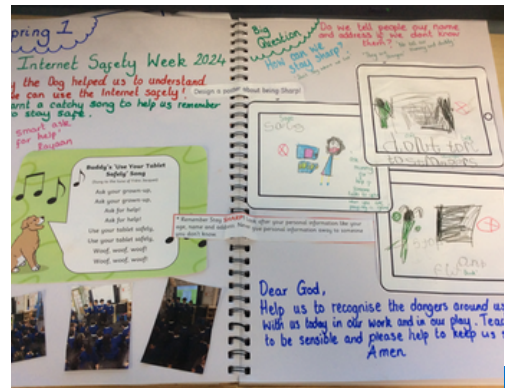 pring 1
Internet Safety Week 2024
y the Dog helped us to understand
e can use the Internet safely!
arnt a catchy song to help us remember
o stay safe.
smart ask
for help'
Rayaan
Buddy's 'Use Your Tablet
Safely' Song
Ask your grown up,
Ask your grown up,
Ask for help!
Ask for help!
Use your tablet safely,
Use your tablet safely,
Woof, woof, woof!
Woof, woof, woof!
Big
Question
How can we
stay sharp?
Do we tell people our name
and address if we don't know
them?
Design a poster about being Sharp!
* Remember Stay
after your personal information like your
age, name and address.
personal information away to someone
you don't know.
Dear God,
Help us to recognise the dangers around us
With us today in our work and in our play. Teac
to be sensible and please help to keep us
Amen